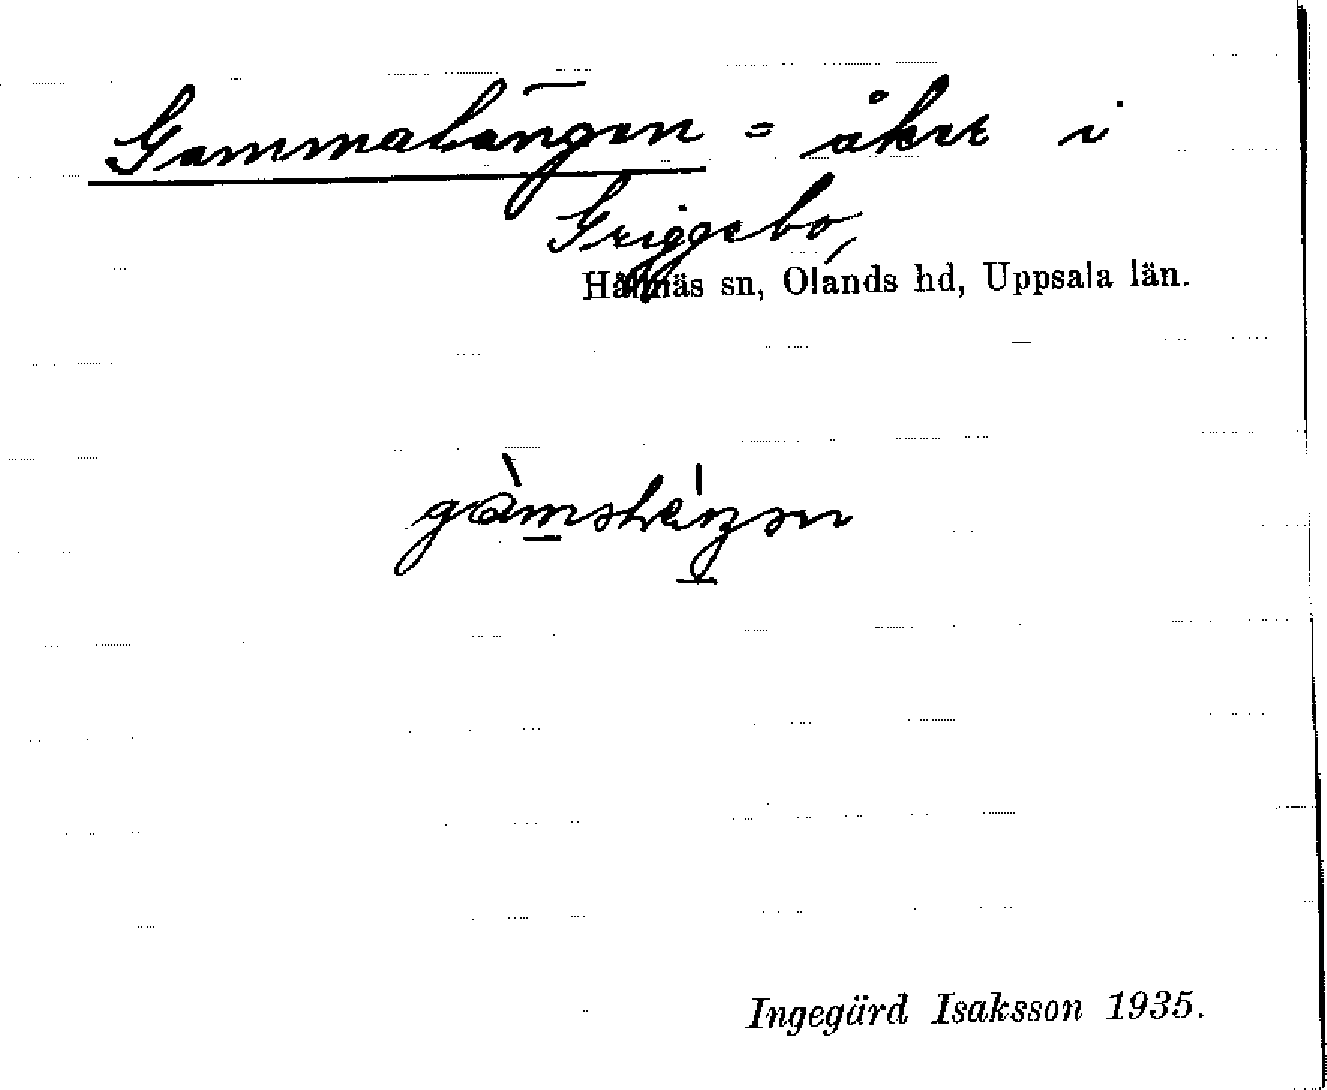 Gammalängen = åker i
Griggebo,
Hållnäs sn, Olands hd, Uppsala län.
Ingegärd Isaksson 1935.